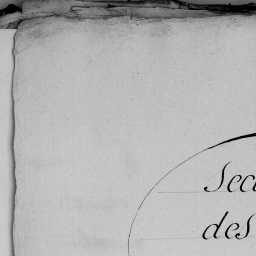 Sec
des